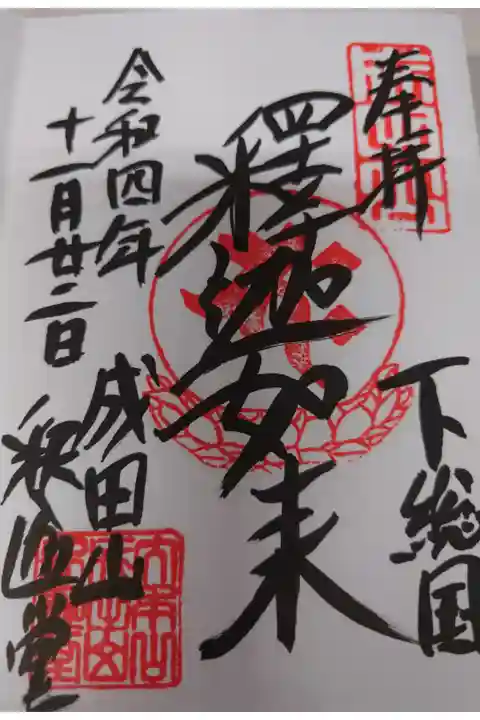 奉拝
下総国
釋迦如来
令和四年
十一月廿二日
成田山
釈迦堂